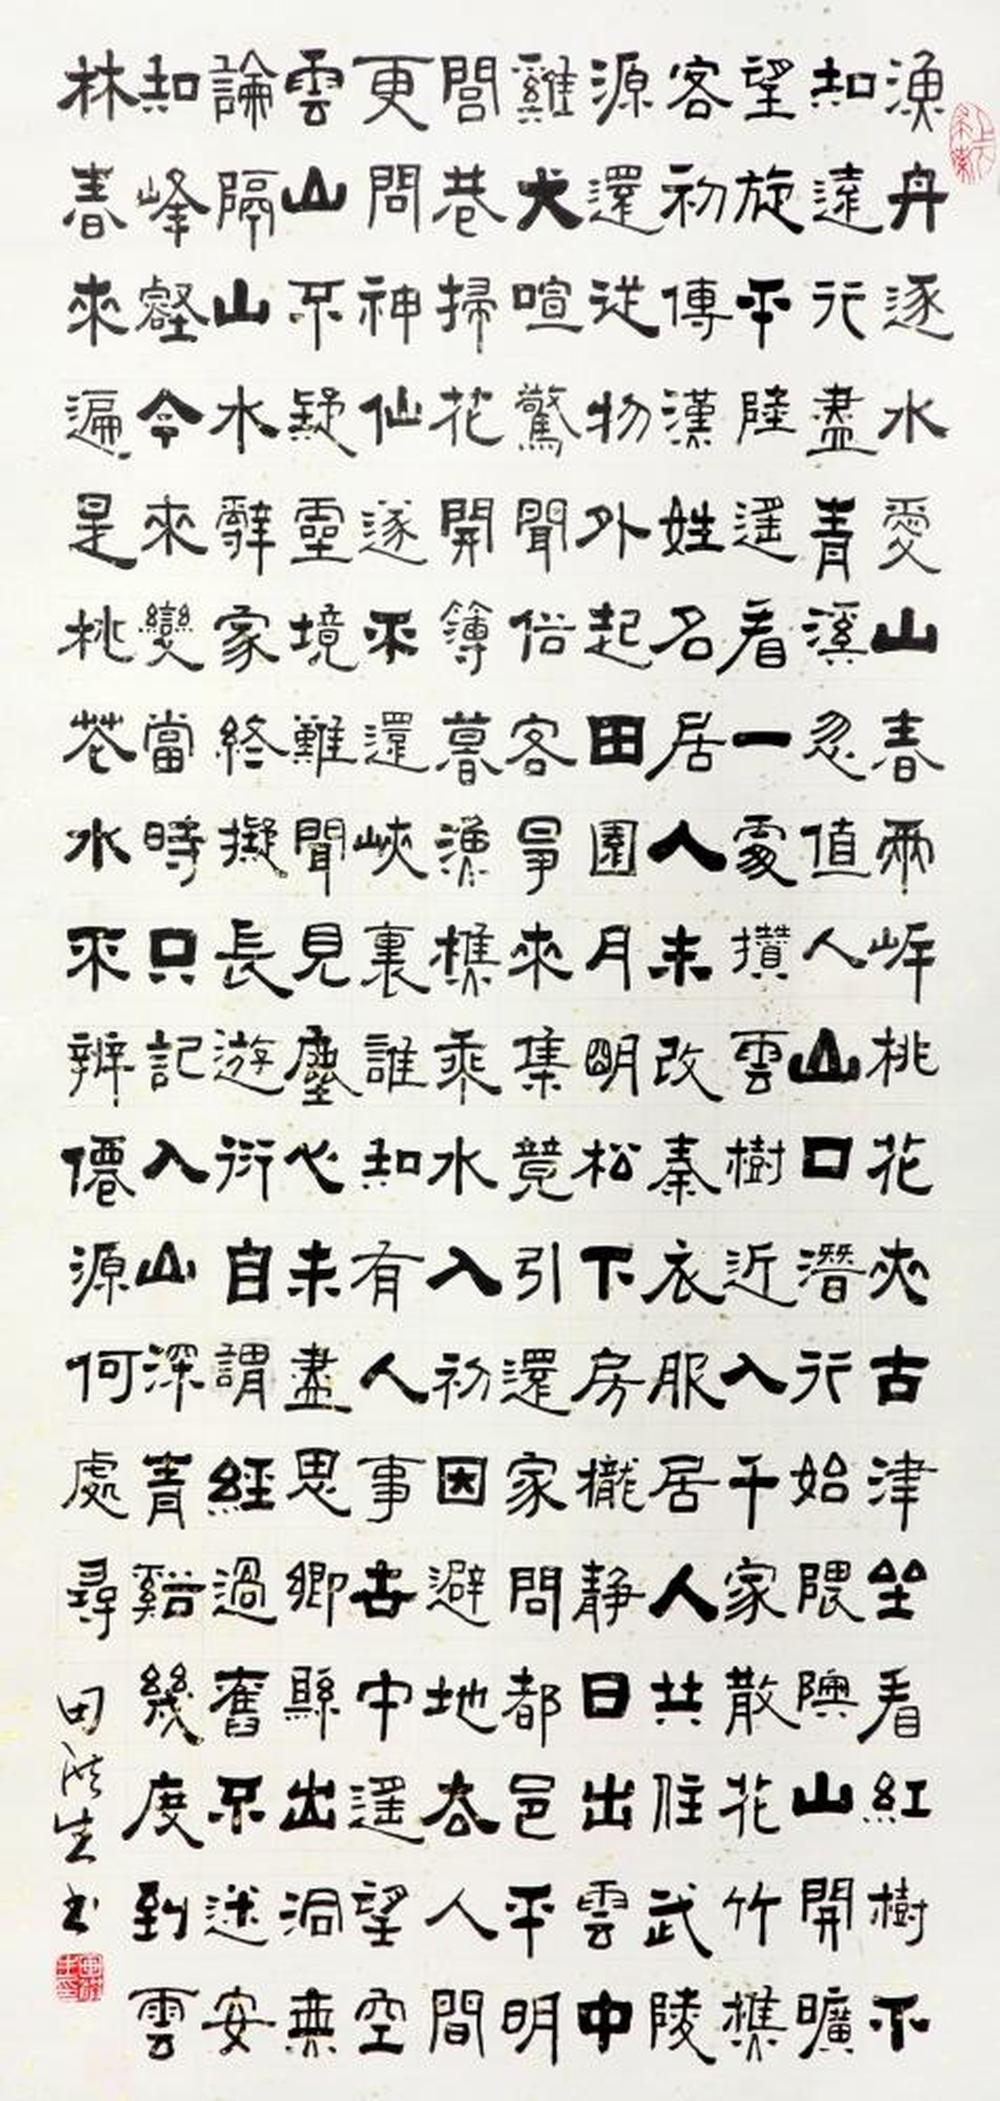 漁舟逐水愛山春兩岸桃花夾古津坐看紅樹不
知遠行盡青溪忽值人山口潛行始隈隩山開曠
望旋平陸遙看一處攢雲樹近入千家散花竹樵
客初傳漢姓名居人未改秦衣服居人共住武陵
源還從物外起田園月明松下房櫳靜日出雲中
雞犬喧驚聞俗客爭來集競引還家問都邑平明
閭巷掃花開簿暮漁樵乘水入初因避地去人間
更問神仙遂不還峽裏誰知有人事世中遙望空
雲山不疑靈境難聞見塵心未盡思鄉縣出洞無
論隔山水辭家終擬長遊衍自謂經過舊不迷安
知峰壑今來變當時只記入山深青谿幾度到雲
林春來遍是桃花水不辨僊源何處尋 田洪生书